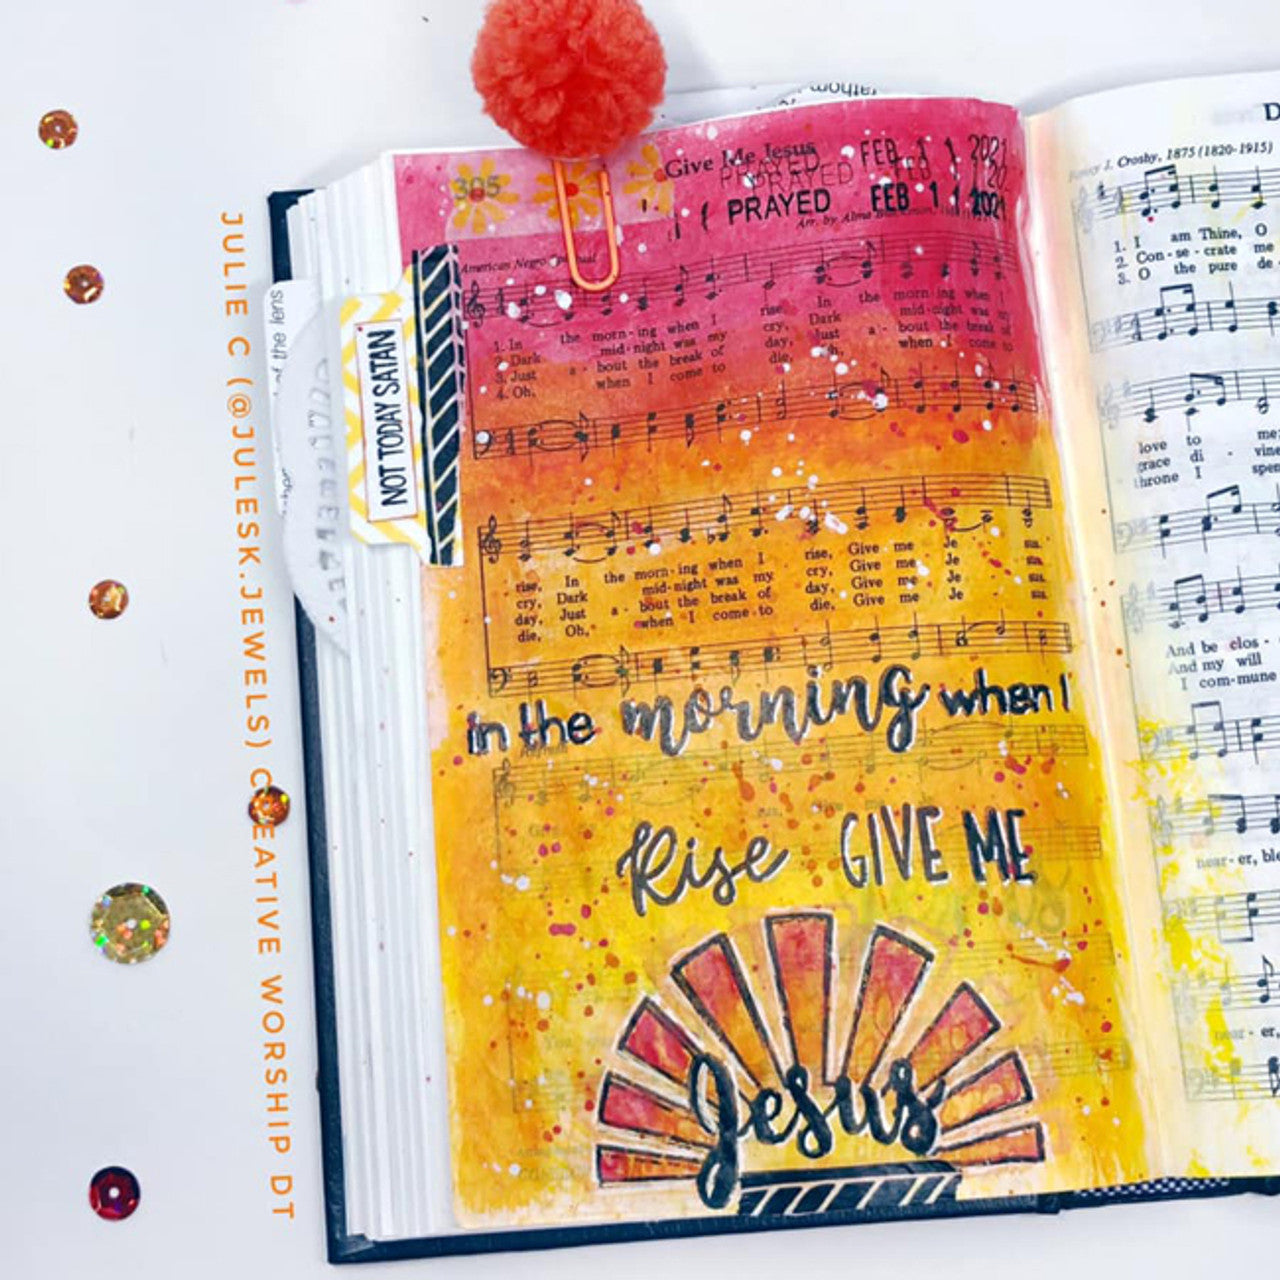 JULIE C (@JULESK.JEWELS) CREATIVE WORSHIP DT
NOT TODAY SATAN
305
Give Me Jesus
PRAYED FEB 1 1 2021
PRAYED
PRAYED FEB 1 1 2021
Arr. by Alma
American Negro Spiritual
1. In the morn-ing when I rise, In the morn-ing when I
2. Dark mid-night was my cry, Dark mid-night was my
3. Just a-bout the break of day, Just a-bout the break of
4. Oh, when I come to die, Oh, when I come to
rise, In the morn-ing when I rise, Give me Je sus.
cry, Dark mid-night was my cry, Give me Je sus.
day, Just a-bout the break of day, Give me Je sus.
die, Oh, when I come to die, Give me Je sus.
in the morning when I
Rise GIVE ME
Jesus
J. Crosby, 1875 (1820-1915)
1. I am Thine, O
2. Con-se-crate me
3. O the pure de-
love to me;
grace di-vine
throne I spen
And be clos-
And my will
I com-mune
near-er, ble
near-er,